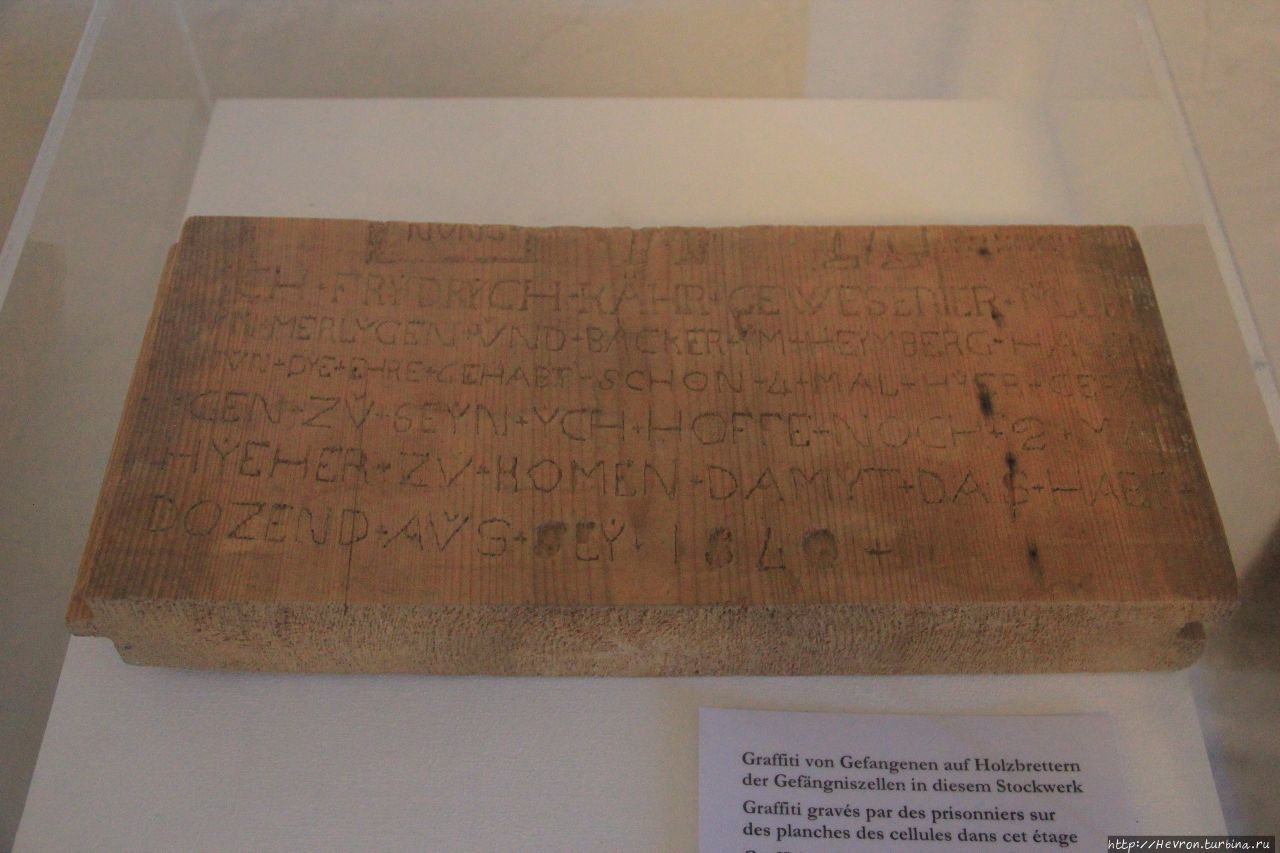 CH + FRYDRYCH + KÄHR + GEWESENER +
MERLYGEN + VND + BÄCKER + YM + HEYMBERG +
NVN + DYE + EHRE + GEHABT + SCHON + 4 + MAL + HYER + GEFA
GEN + ZV̆ + SEYN + YCH + HOFFE + NOCH + 2 +
HYEHER + ZV + KOMEN + DAMYT + DAS + HABT +
DOZEND + AV̆S + SEY · 1840 +
Graffiti von Gefangenen auf Holzbrettern
der Gefängniszellen in diesem Stockwerk
Graffiti gravés par des prisonniers sur
des planches des cellules dans cet étage
http://Hevron.turbina.ru